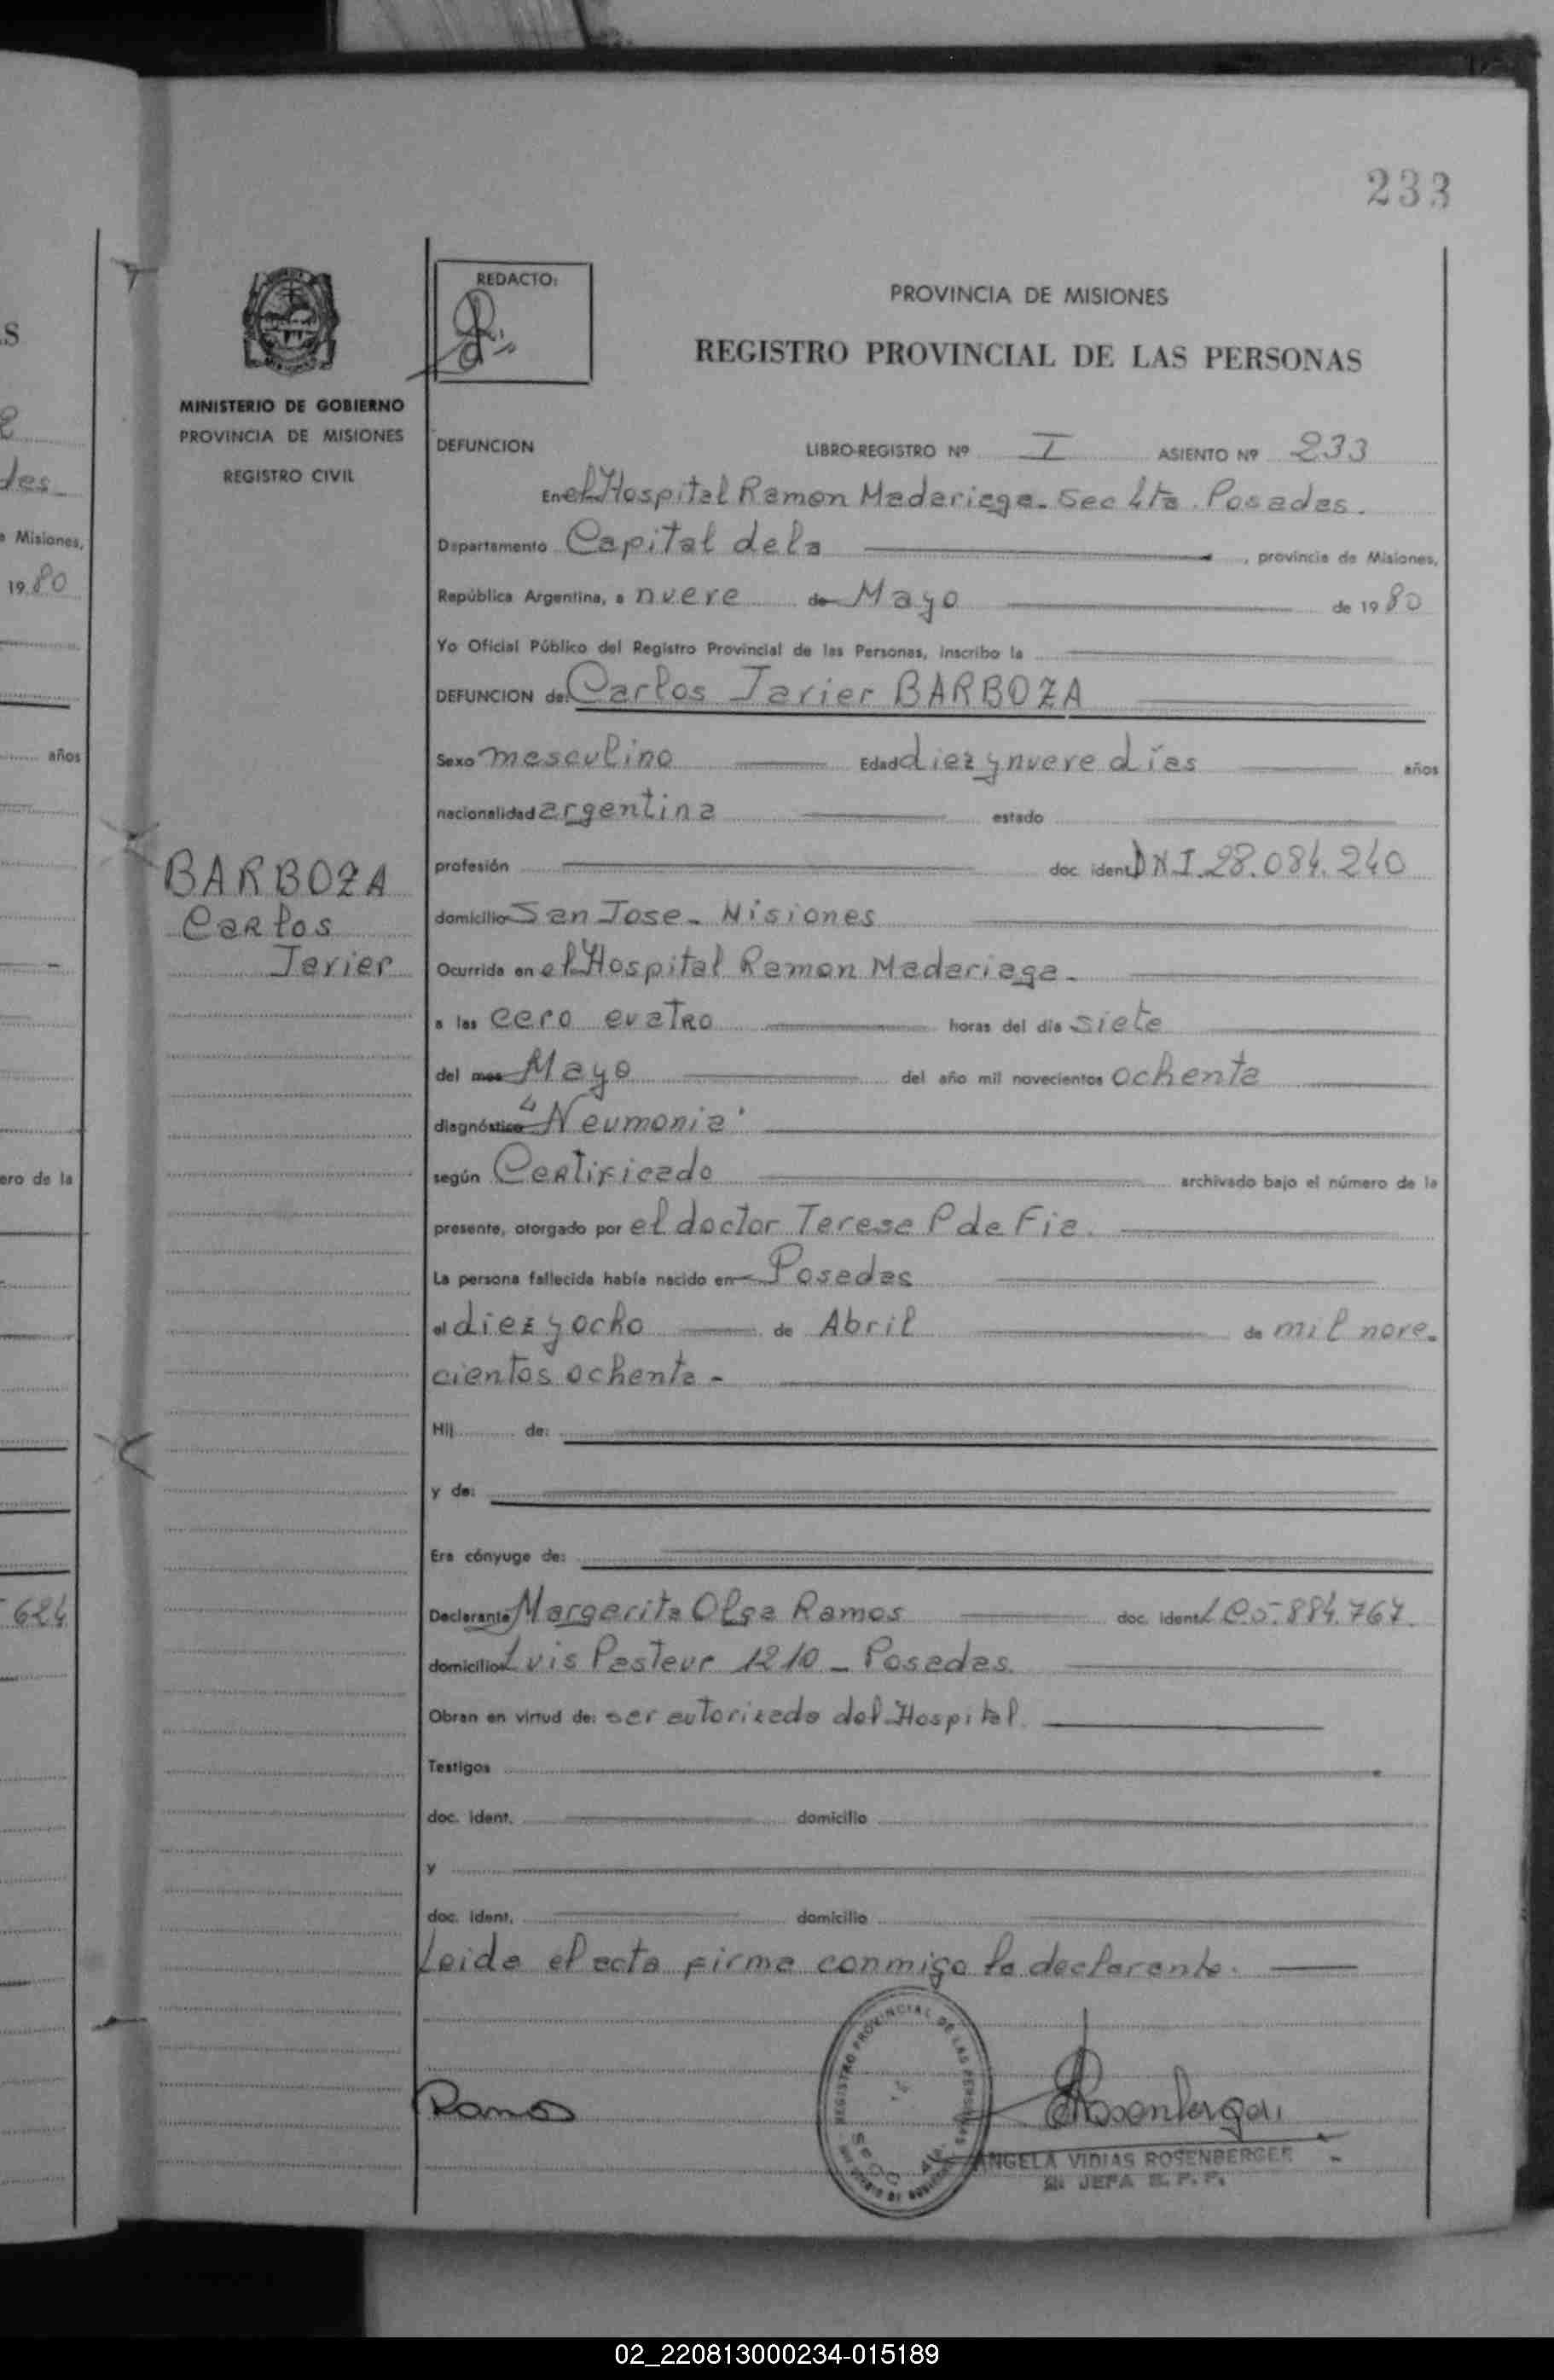 233
REDACTO:
PROVINCIA DE MISIONES
REGISTRO PROVINCIAL DE LAS PERSONAS
MINISTERIO DE GOBIERNO
PROVINCIA DE MISIONES
REGISTRO CIVIL
DEFUNCION LIBRO-REGISTRO Nº I ASIENTO Nº 233
En el Hospital Ramon Madariaga - Sec 4ta. Posadas.
Departamento Capital de la , provincia de Misiones,
República Argentina, a nueve de Mayo de 1980
Yo Oficial Público del Registro Provincial de las Personas, inscribo la
DEFUNCION de: Carlos Javier BARBOZA
Sexo masculino Edad diez y nueve días años
nacionalidad argentina estado
profesión doc. ident. DNI. 28.084.240
BARBOZA
Carlos
Javier
domicilio San Jose - Misiones
Ocurrida en el Hospital Ramon Madariaga -
a las cero cuatro horas del día siete
del mes Mayo del año mil novecientos ochenta
diagnóstico "Neumonia"
según Certificado archivado bajo el número de la
presente, otorgado por el doctor Teresa P de Fia.
La persona fallecida había nacido en Posadas
el diez y ocho de Abril de mil nove-
cientos ochenta -
Hij de:
y de:
Era cónyuge de:
Declarante Margarita Olga Ramos doc. ident. L C 5.884.767
domicilio Luis Pasteur 1210 - Posadas.
Obran en virtud de: ser autorizada del Hospital.
Testigos
doc. ident. domicilio
y
doc. ident. domicilio
Leida el acta firma conmigo la declarante.
REGISTRO PROVINCIAL DE LAS PERSONAS
Ramos
Rosenberger
ANGELA VIDIAS ROSENBERGER
JEFA R. P. P.
S
des
a Misiones,
1980
años
ero de la
624
02_220813000234-015189